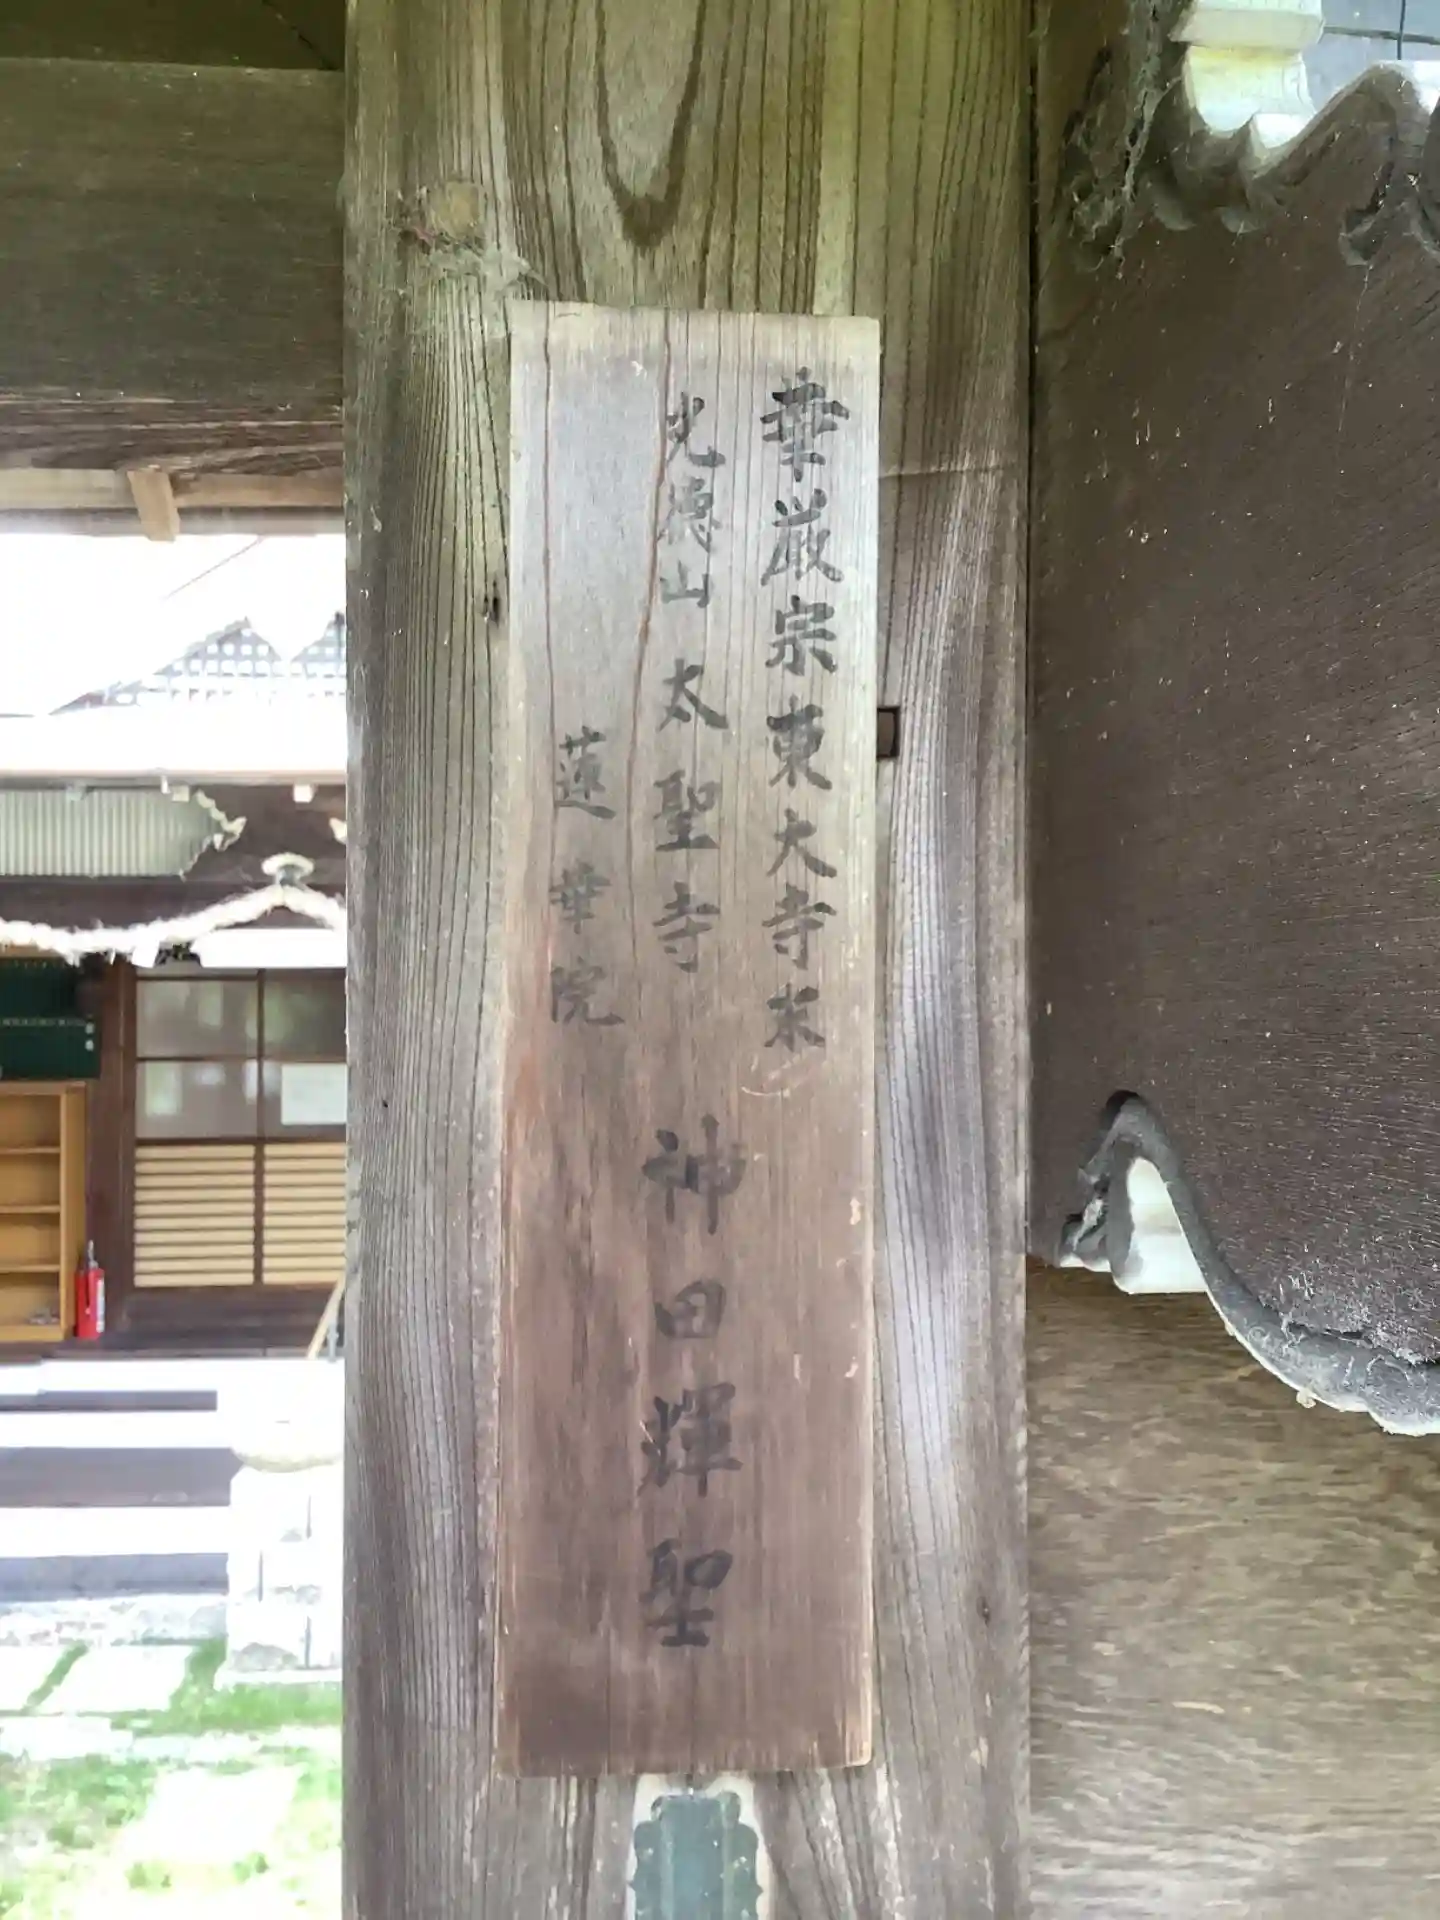 華厳宗東大寺末
光徳山 太聖寺 神田輝聖
蓮華院